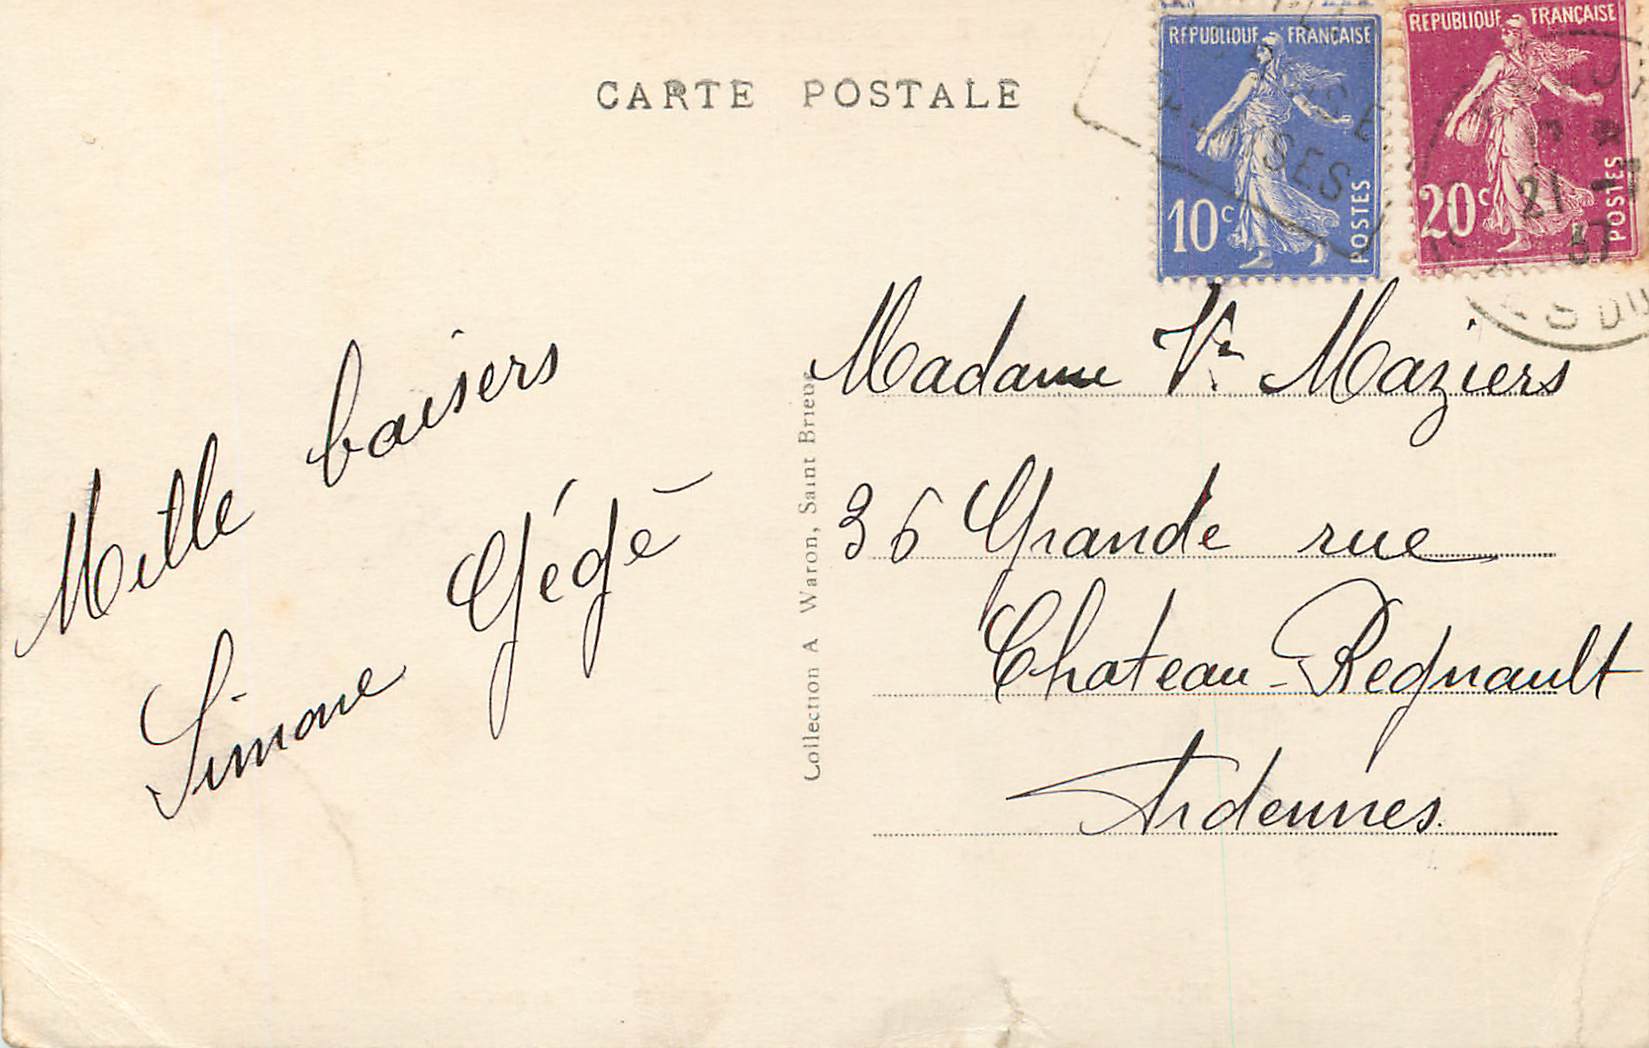 CARTE POSTALE
REPUBLIQUE FRANÇAISE
10c
POSTES
REPUBLIQUE FRANÇAISE
20c
POSTES
21
37
S DU
Mille baisers
Simone Gégé
Collection A Waron, Saint Brieuc
Madame Ve Maziers
36 Grande rue
Chateau-Regnault
Ardennes.